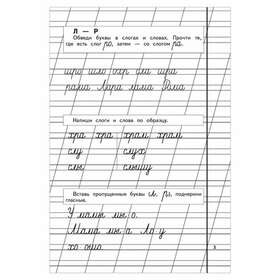 Л — Р
Обведи буквы в слогах и словах. Прочти те,
где есть слог ра, затем — со слогом ра.
шро шло окр сла шра
рама Лара лама Рама
Напиши слоги и слова по образцу.
хра хра храм храм
слу слух
слы слышу
Вставь пропущенные буквы л, р, подчеркни
гласные.
У мамы мы о.
Мама мы а Ла у
хо ошо.
3